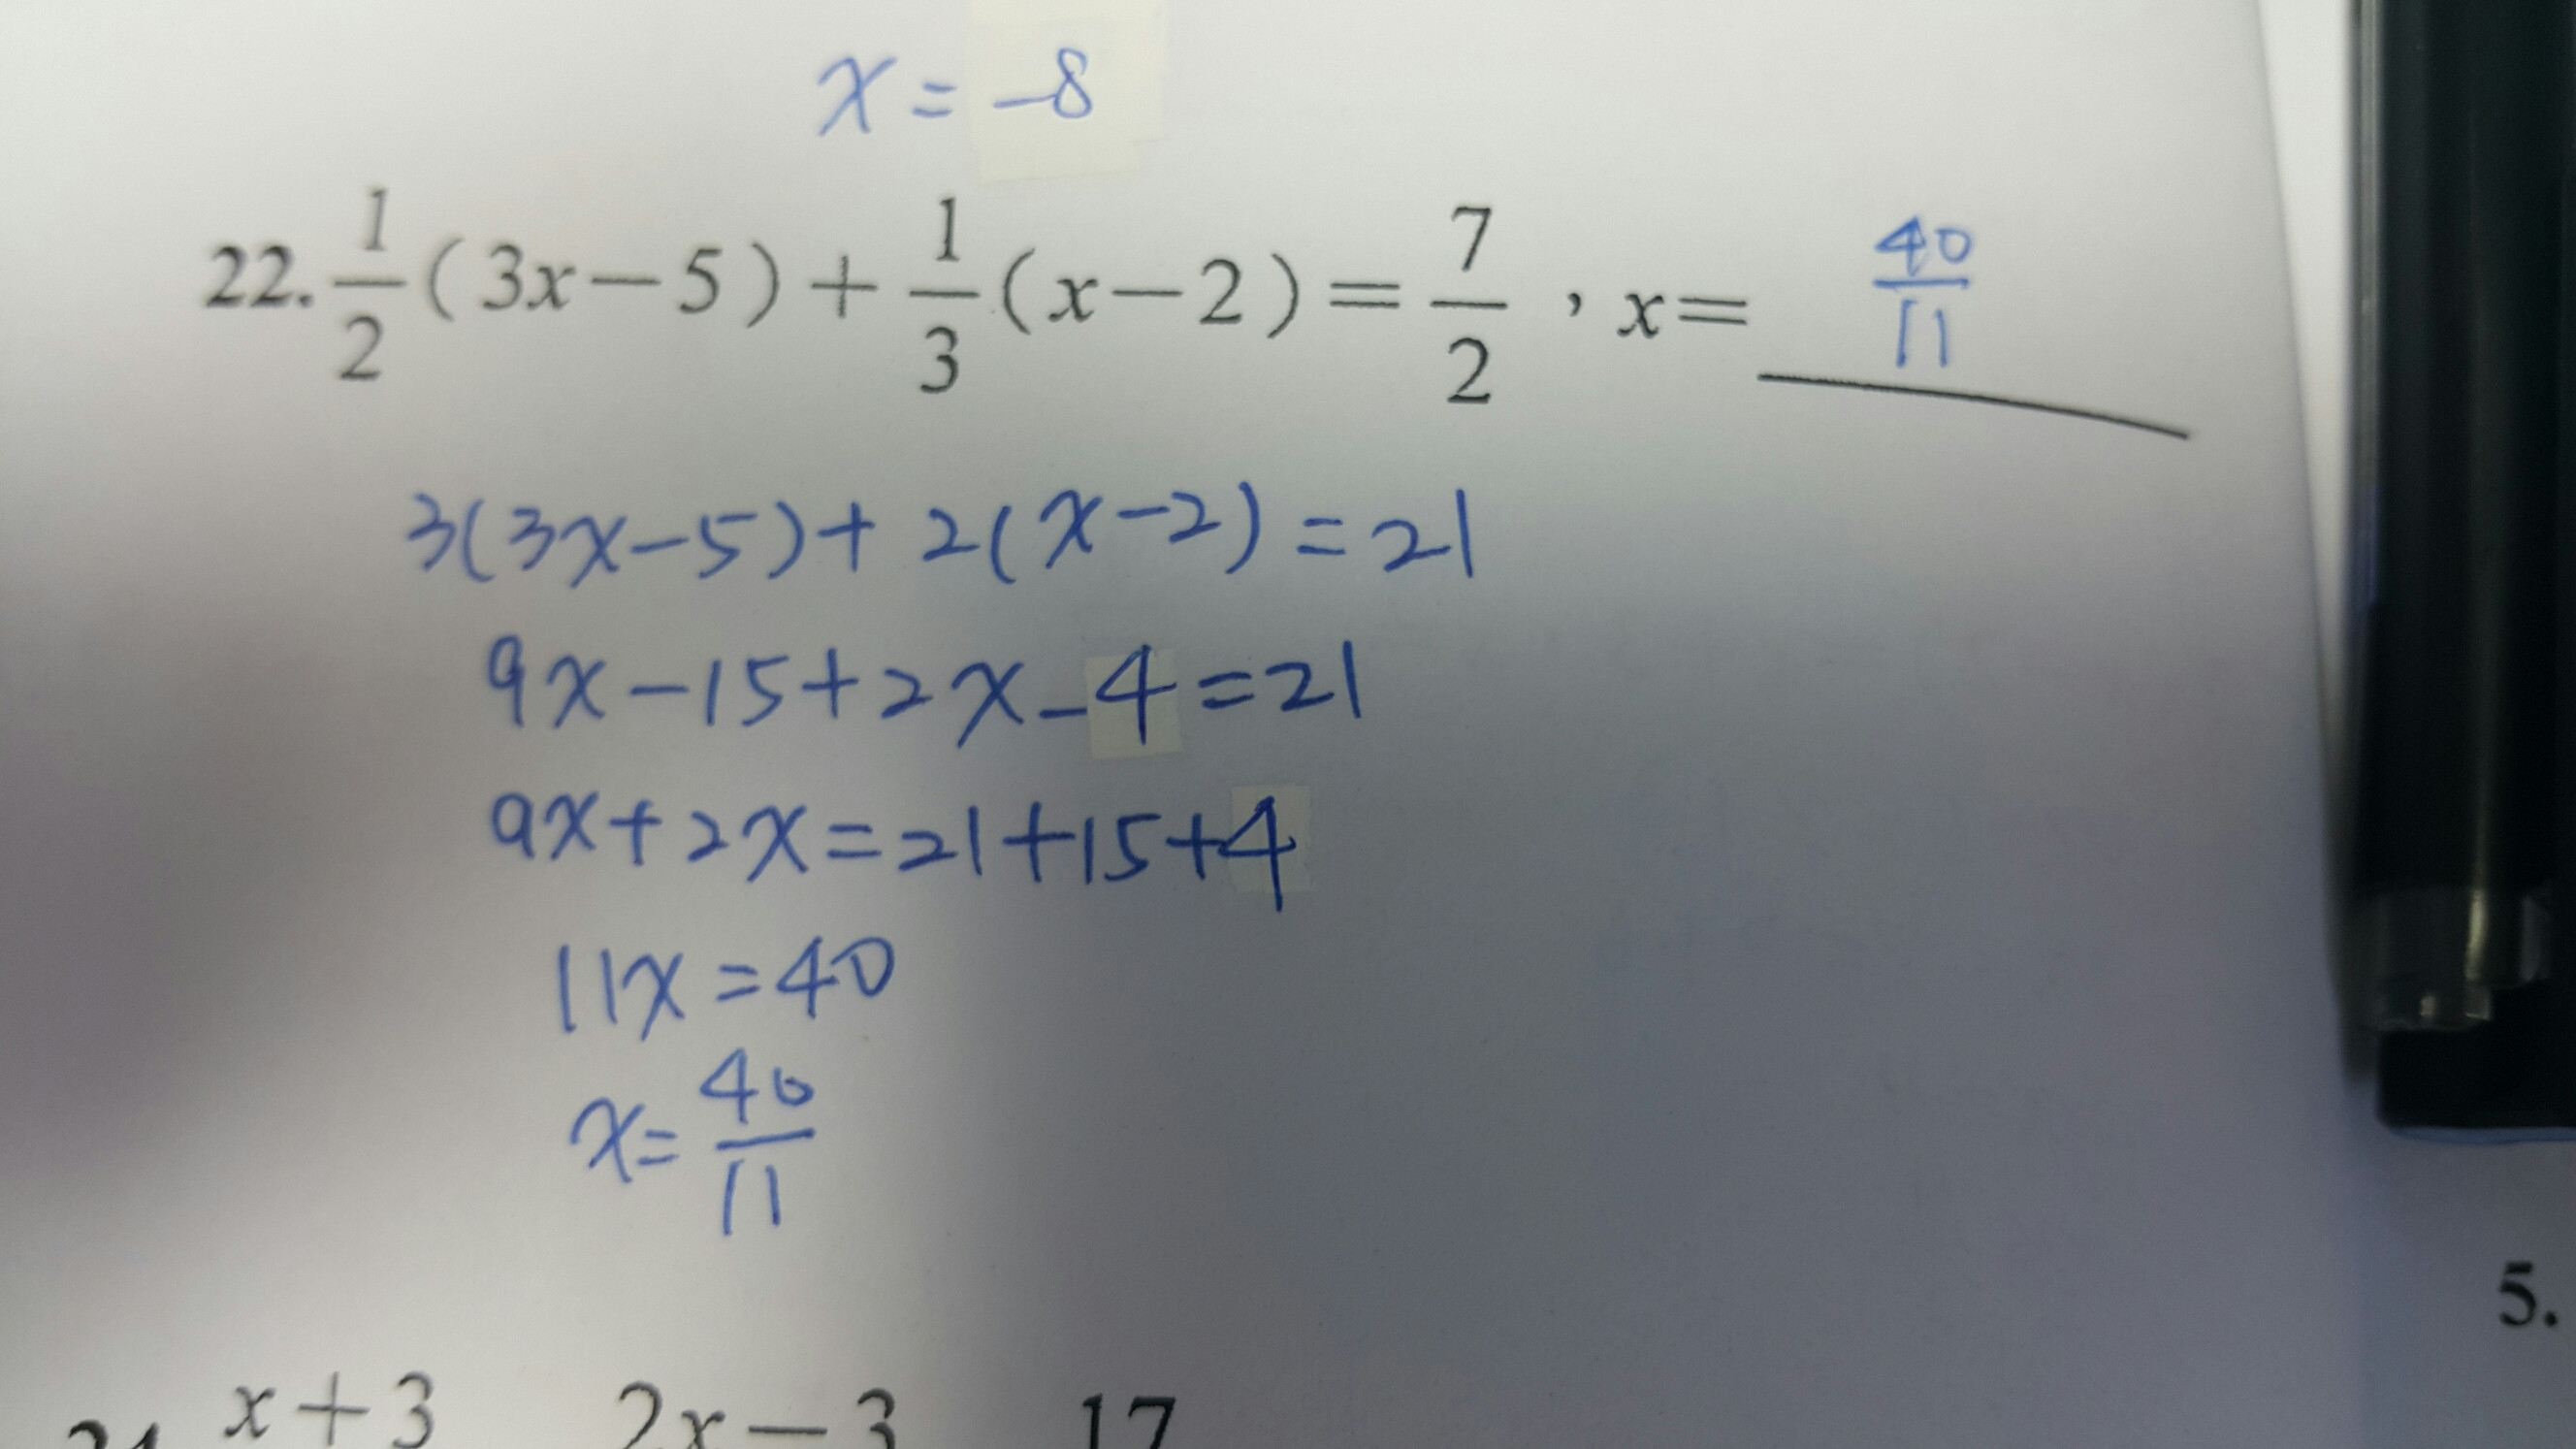 x = -8
22. 1/2 ( 3x - 5 ) + 1/3 ( x - 2 ) = 7/2 , x = 40/11
3(3x-5)+2(x-2)=21
9x-15+2x-4=21
9x+2x=21+15+4
11x=40
x=40/11
5.
x+3 2x-3 17